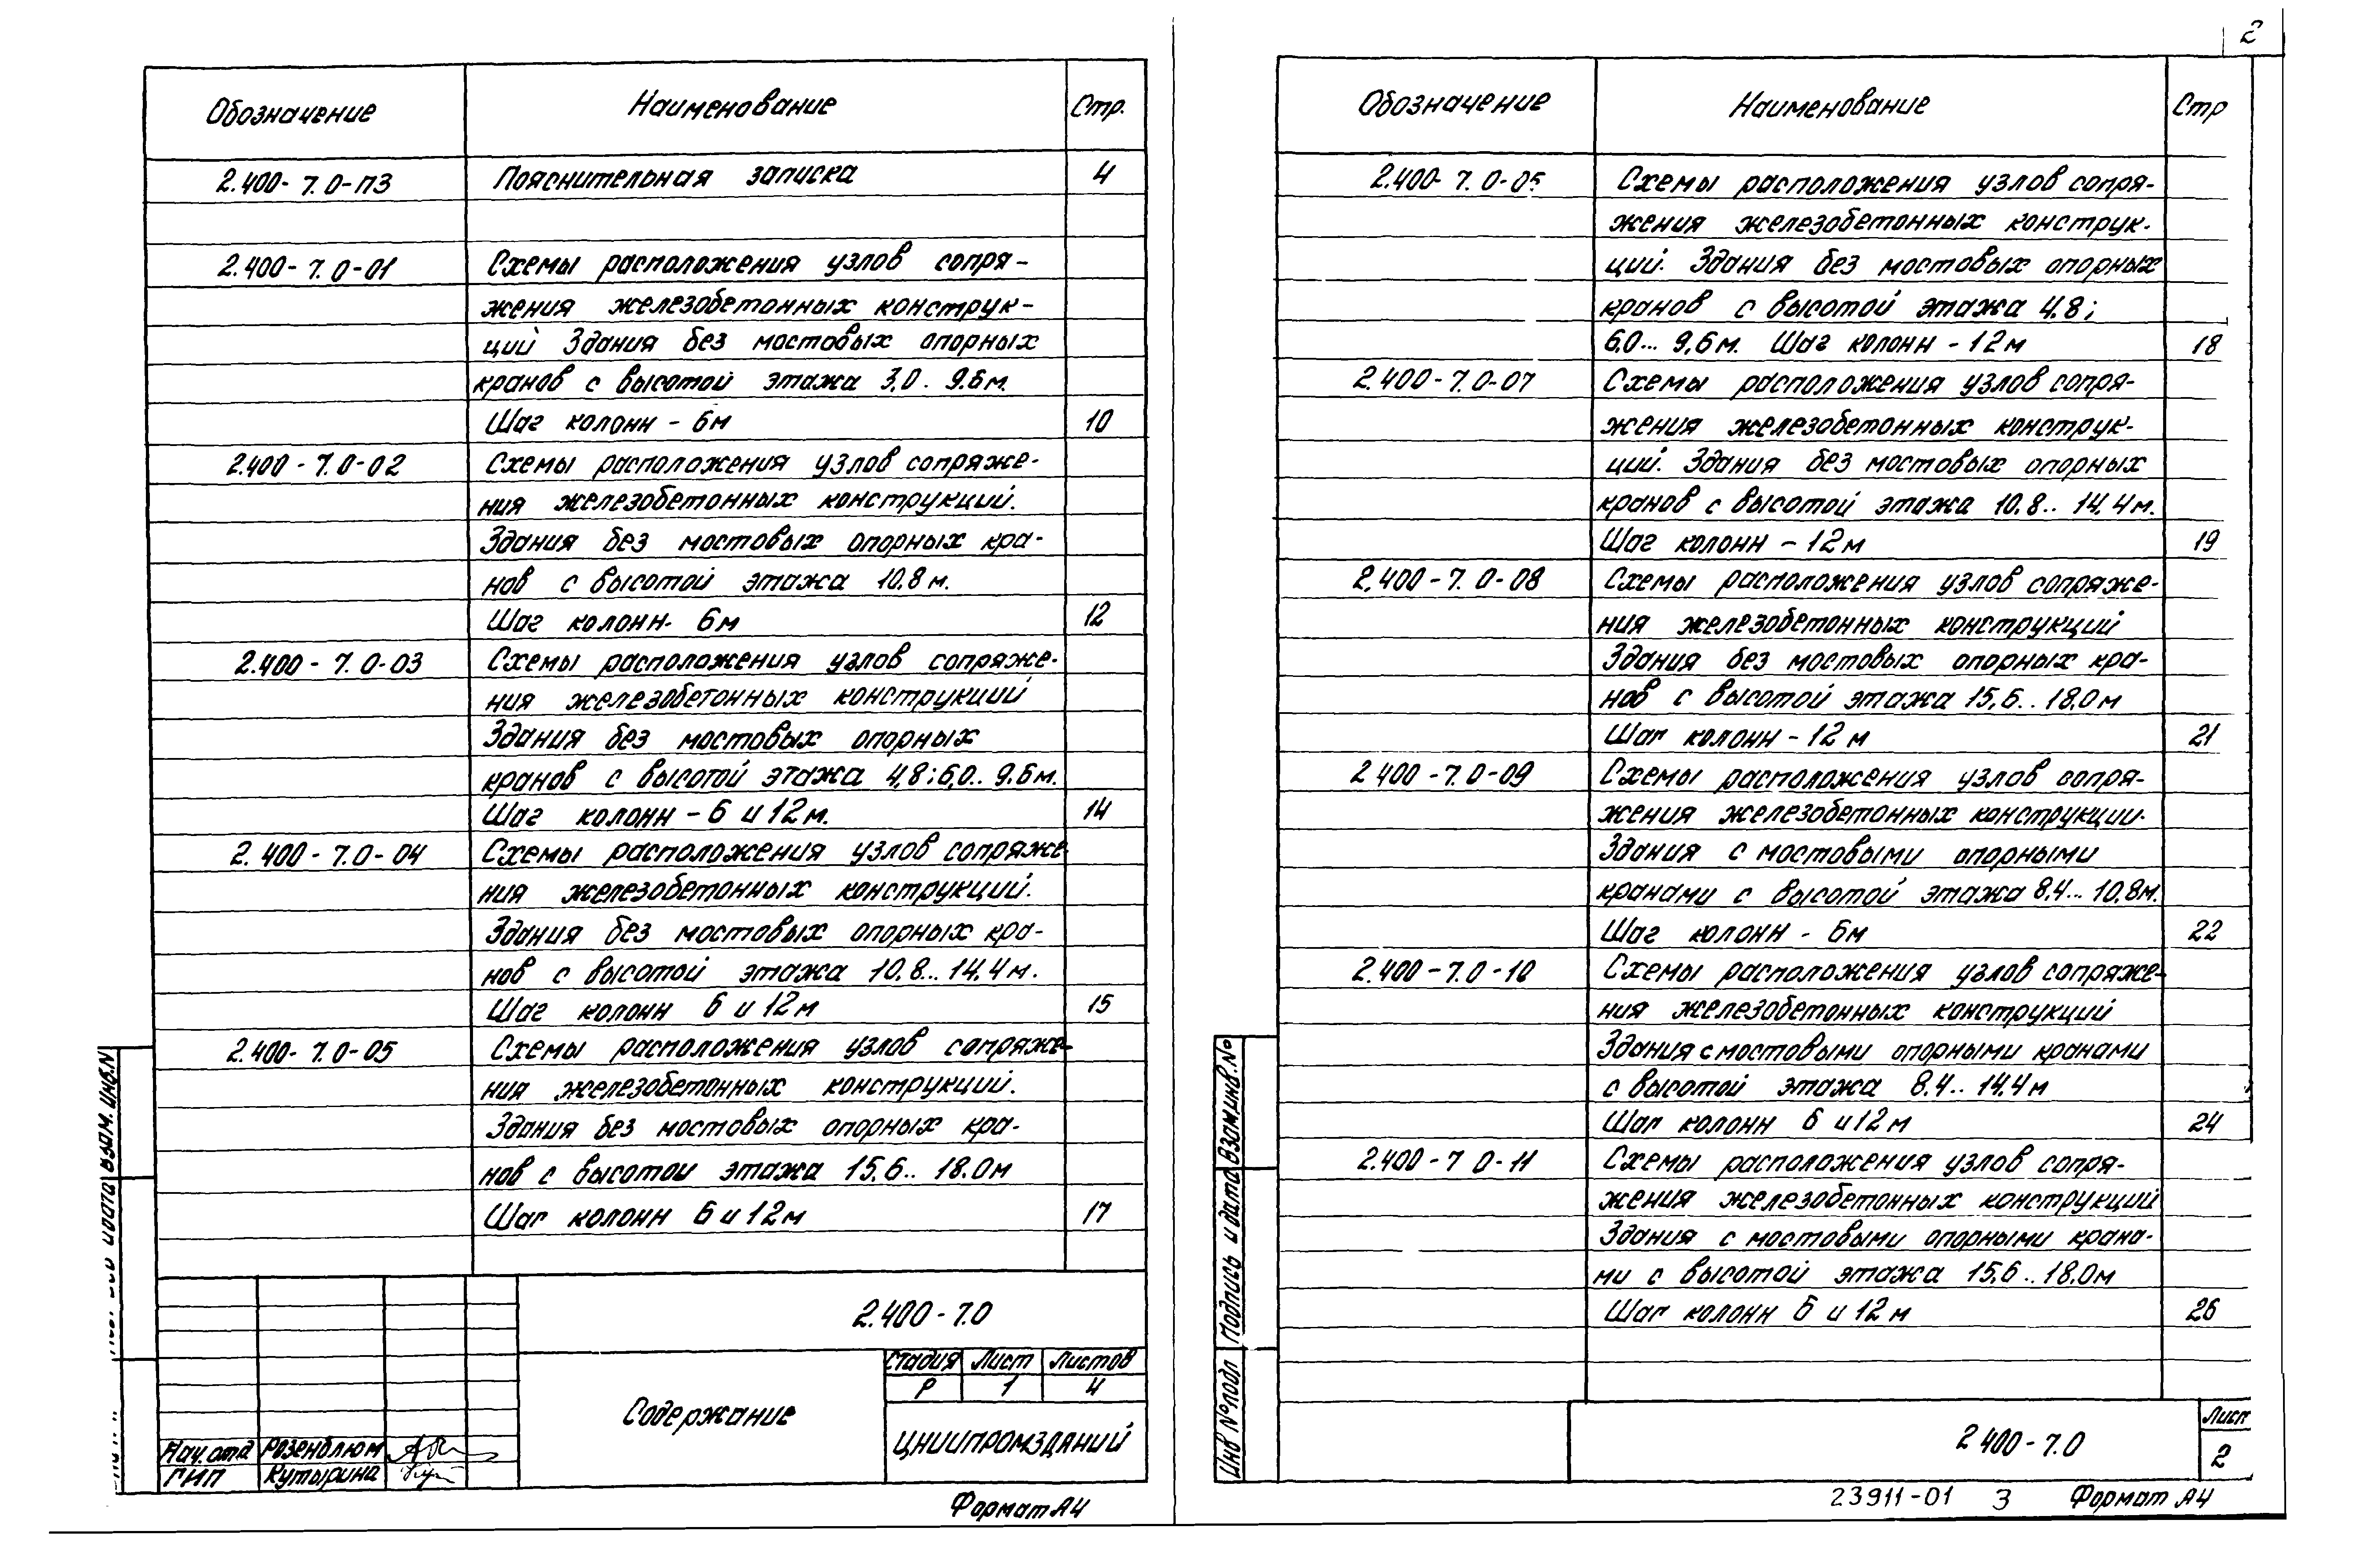 Обозначение Наименование Стр.
2.400-7.0-ПЗ Пояснительная записка 4
2.400-7.0-01 Схемы расположения узлов сопря-
жения железобетонных конструк-
ций Здания без мостовых опорных
кранов с высотой этажа 3,0.. 9.6м.
Шаг колонн - 6м 10
2.400-7.0-02 Схемы расположения узлов сопряже-
ния железобетонных конструкций.
Здания без мостовых опорных кра-
нов с высотой этажа 10,8м.
Шаг колонн- 6м 12
2.400-7.0-03 Схемы расположения узлов сопряже-
ния железобетонных конструкций
Здания без мостовых опорных
кранов с высотой этажа 4,8; 6,0.. 9.6м.
Шаг колонн - 6 и 12м. 14
2.400-7.0-04 Схемы расположения узлов сопряже-
ния железобетонных конструкций.
Здания без мостовых опорных кра-
нов с высотой этажа 10,8... 14,4м.
Шаг колонн 6 и 12м 15
2.400-7.0-05 Схемы расположения узлов сопряже-
ния железобетонных конструкций.
Здания без мостовых опорных кра-
нов с высотой этажа 15,6.. 18.0м
Шаг колонн 6 и 12м 17
2.400-7.0
Стадия Лист Листов
Р 1 4
Содержание
ЦНИИПРОМЗДАНИЙ
Нач.отд Розенблюм
ГИП Кутырина
Взам. инв.N
Формат А4
2
Обозначение Наименование Стр
2.400-7.0-05 Схемы расположения узлов сопря-
жения железобетонных конструк-
ций. Здания без мостовых опорных
кранов с высотой этажа 4,8;
6,0... 9,6м. Шаг колонн - 12м 18
2.400-7.0-07 Схемы расположения узлов сопря-
жения железобетонных конструк-
ций. Здания без мостовых опорных
кранов с высотой этажа 10,8.. 14,4м.
Шаг колонн - 12м 19
2.400-7.0-08 Схемы расположения узлов сопряже-
ния железобетонных конструкций
Здания без мостовых опорных кра-
нов с высотой этажа 15,6.. 18.0м
Шаг колонн - 12м 21
2 400-7.0-09 Схемы расположения узлов сопря-
жения железобетонных конструкции.
Здания с мостовыми опорными
кранами с высотой этажа 8,4... 10,8м.
Шаг колонн - 6м 22
2.400-7.0-10 Схемы расположения узлов сопряже-
ния железобетонных конструкций
Здания с мостовыми опорными кранами
с высотой этажа 8.4.. 14,4м
Шаг колонн 6 и 12м 24
2.400-7 0-11 Схемы расположения узлов сопря-
жения железобетонных конструкций
Здания с мостовыми опорными крана-
ми с высотой этажа 15,6.. 18,0м
Шаг колонн 6 и 12м 26
Взам.инв.N°
Подпись и дата
Инв N°подл
2 400-7.0
Лист
2
23911-01 3 Формат А4